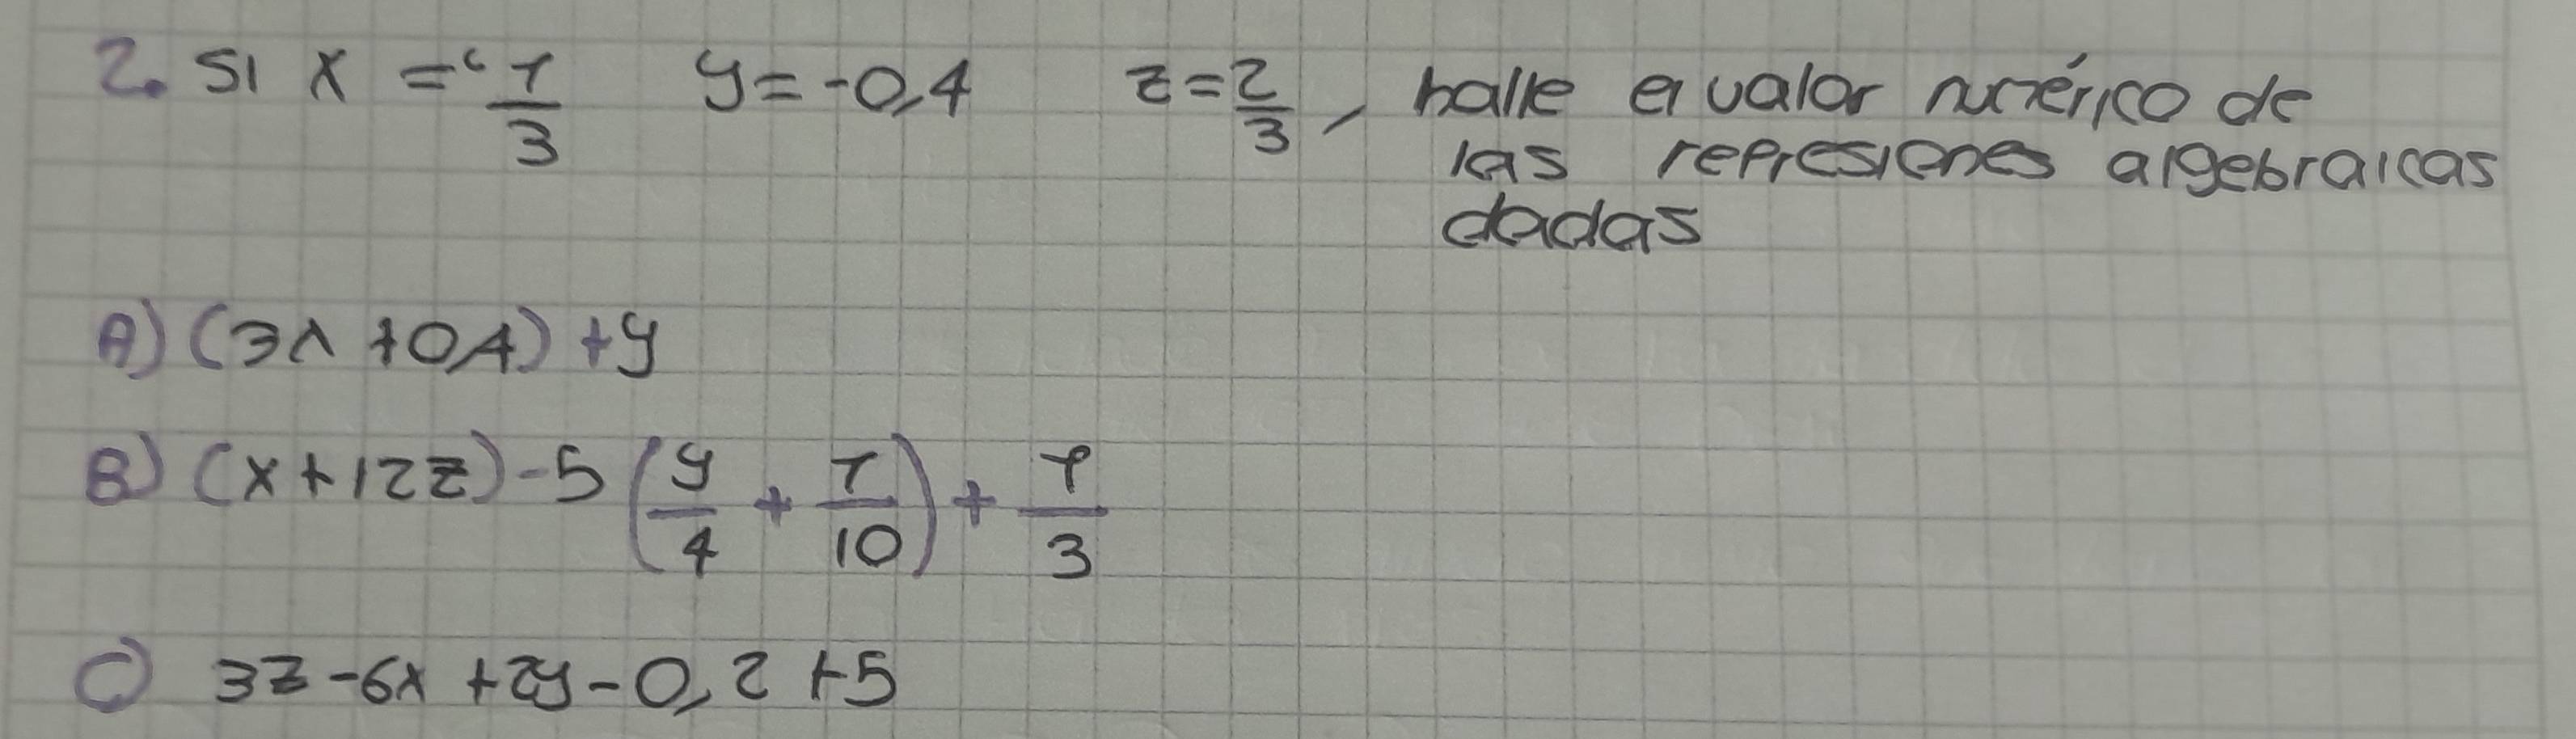 2. Si x = -1/3 y = -0,4 z = 2/3, halle el valor numérico de
las represiones algebraicas
dadas
A) (3x + 0,4) + y
B) (x + 12z) - 5 (y/4 + 1/10) + 1/3
C) 3z - 6x + 2y - 0,2 + 5